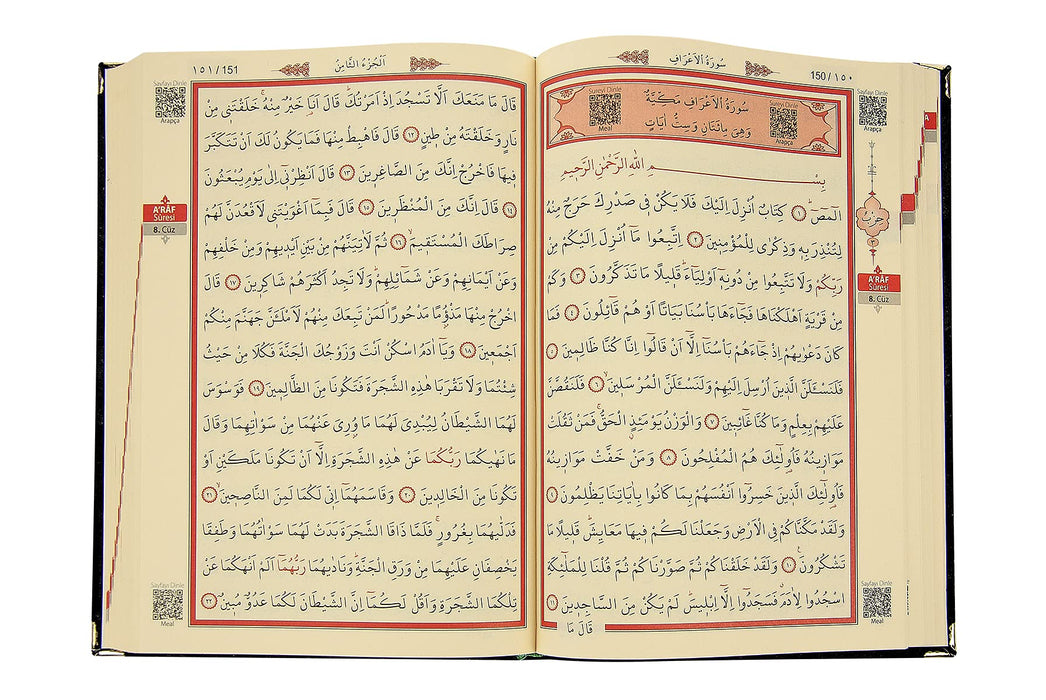 سُورَةُ اْلاَعْرَافِ
150/١٥٠
Sayfayı Dinle
Arapça
Sureyi Dinle
Meal
سُورَةُ اْلاَعْرَافِ مَكِّيَّةٌ
وَهِيَ مِائَتَانِ وَسِتُّ اٰيَاتٍ
Arapça
بِسْمِ اللّٰهِ الرَّحْمٰنِ الرَّحٖيمِ
الٓمٓصٓ ﴿١﴾ كِتَابٌ اُنْزِلَ اِلَيْكَ فَلَا يَكُنْ فٖي صَدْرِكَ حَرَجٌ مِنْهُ
لِتُنْذِرَ بِهٖ وَذِكْرٰى لِلْمُؤْمِنٖينَ ﴿٢﴾ اِتَّبِعُوا مَٓا اُنْزِلَ اِلَيْكُمْ مِنْ
رَبِّكُمْ وَلَا تَتَّبِعُوا مِنْ دُونِهٖٓ اَوْلِيَٓاءَۜ قَلٖيلًا مَا تَذَكَّرُونَ ﴿٣﴾ وَكَمْ
مِنْ قَرْيَةٍ اَهْلَكْنَاهَا فَجَٓاءَهَا بَأْسُنَا بَيَاتًا اَوْ هُمْ قَٓائِلُونَ ﴿٤﴾ فَمَا
كَانَ دَعْوٰيهُمْ اِذْ جَٓاءَهُمْ بَأْسُنَٓا اِلَّٓا اَنْ قَالُٓوا اِنَّا كُنَّا ظَالِمٖينَ ﴿٥﴾
فَلَنَسْـَٔلَنَّ الَّذٖينَ اُرْسِلَ اِلَيْهِمْ وَلَنَسْـَٔلَنَّ الْمُرْسَلٖينَۙ ﴿٦﴾ فَلَنَقُصَّنَّ
عَلَيْهِمْ بِعِلْمٍ وَمَا كُنَّا غَٓائِبٖينَ ﴿٧﴾ وَالْوَزْنُ يَوْمَئِذٍۨ الْحَقُّۚ فَمَنْ ثَقُلَتْ
مَوَازٖينُهُ فَاُو۬لٰٓئِكَ هُمُ الْمُفْلِحُونَ ﴿٨﴾ وَمَنْ خَفَّتْ مَوَازٖينُهُ
فَاُو۬لٰٓئِكَ الَّذٖينَ خَسِرُٓوا اَنْفُسَهُمْ بِمَا كَانُوا بِاٰيَاتِنَا يَظْلِمُونَ ﴿٩﴾
وَلَقَدْ مَكَّنَّاكُمْ فِي الْاَرْضِ وَجَعَلْنَا لَكُمْ فٖيهَا مَعَايِشَۜ قَلٖيلًا مَا
تَشْكُرُونَ۟ ﴿١٠﴾ وَلَقَدْ خَلَقْنَاكُمْ ثُمَّ صَوَّرْنَاكُمْ ثُمَّ قُلْنَا لِلْمَلٰٓئِكَةِ
اسْجُدُوا لِاٰدَمَۗ فَسَجَدُٓوا اِلَّٓا اِبْلٖيسَۜ لَمْ يَكُنْ مِنَ السَّاجِدٖينَ ﴿١١﴾
قَالَ مَا
حزب
٣
A'RÂF
Sûresi
8. Cüz
Sayfayı Dinle
Meal
١٥١/151
اَلْجُزْءُ الثَّامِنُ
Sayfayı Dinle
Arapça
قَالَ مَا مَنَعَكَ اَلَّا تَسْجُدَ اِذْ اَمَرْتُكَۜ قَالَ اَنَا۬ خَيْرٌ مِنْهُۚ خَلَقْتَنٖي مِنْ
نَارٍ وَخَلَقْتَهُ مِنْ طٖينٍ ﴿١٢﴾ قَالَ فَاهْبِطْ مِنْهَا فَمَا يَكُونُ لَكَ اَنْ تَتَكَبَّرَ
فٖيهَا فَاخْرُجْ اِنَّكَ مِنَ الصَّاغِرٖينَ ﴿١٣﴾ قَالَ اَنْظِرْنٖٓي اِلٰى يَوْمِ يُبْعَثُونَ
﴿١٤﴾ قَالَ اِنَّكَ مِنَ الْمُنْظَرٖينَ ﴿١٥﴾ قَالَ فَبِمَٓا اَغْوَيْتَنٖي لَاَقْعُدَنَّ لَهُمْ
صِرَاطَكَ الْمُسْتَقٖيمَۙ ﴿١٦﴾ ثُمَّ لَاٰتِيَنَّهُمْ مِنْ بَيْنِ اَيْدٖيهِمْ وَمِنْ خَلْفِهِمْ
وَعَنْ اَيْمَانِهِمْ وَعَنْ شَمَٓائِلِهِمْۜ وَلَا تَجِدُ اَكْثَرَهُمْ شَاكِرٖينَ ﴿١٧﴾ قَالَ
اخْرُجْ مِنْهَا مَذْؤُ۫مًا مَدْحُورًاۜ لَمَنْ تَبِعَكَ مِنْهُمْ لَاَمْلَـَٔنَّ جَهَنَّمَ مِنْكُمْ
اَجْمَعٖينَ ﴿١٨﴾ وَيَٓا اٰدَمُ اسْكُنْ اَنْتَ وَزَوْجُكَ الْجَنَّةَ فَكُلَا مِنْ حَيْثُ
شِئْتُمَا وَلَا تَقْرَبَا هٰذِهِ الشَّجَرَةَ فَتَكُونَا مِنَ الظَّالِمٖينَ ﴿١٩﴾ فَوَسْوَسَ
لَهُمَا الشَّيْطَانُ لِيُبْدِيَ لَهُمَا مَا وُ۫رِيَ عَنْهُمَا مِنْ سَوْاٰتِهِمَا وَقَالَ
مَا نَهٰيكُمَا رَبُّكُمَا عَنْ هٰذِهِ الشَّجَرَةِ اِلَّٓا اَنْ تَكُونَا مَلَكَيْنِ اَوْ
تَكُونَا مِنَ الْخَالِدٖينَ ﴿٢٠﴾ وَقَاسَمَهُمَٓا اِنّٖي لَكُمَا لَمِنَ النَّاصِحٖينَۙ ﴿٢١﴾
فَدَلّٰيهُمَا بِغُرُورٍۚ فَلَمَّا ذَاقَا الشَّجَرَةَ بَدَتْ لَهُمَا سَوْاٰتُهُمَا وَطَفِقَا
يَخْصِفَانِ عَلَيْهِمَا مِنْ وَرَقِ الْجَنَّةِۜ وَنَادٰيهُمَا رَبُّهُمَٓا اَلَمْ اَنْهَكُمَا عَنْ
تِلْكُمَا الشَّجَرَةِ وَاَقُلْ لَكُمَٓا اِنَّ الشَّيْطَانَ لَكُمَا عَدُوٌّ مُبٖينٌ ﴿٢٢﴾
A'RÂF
Sûresi
8. Cüz
Sayfayı Dinle
Meal